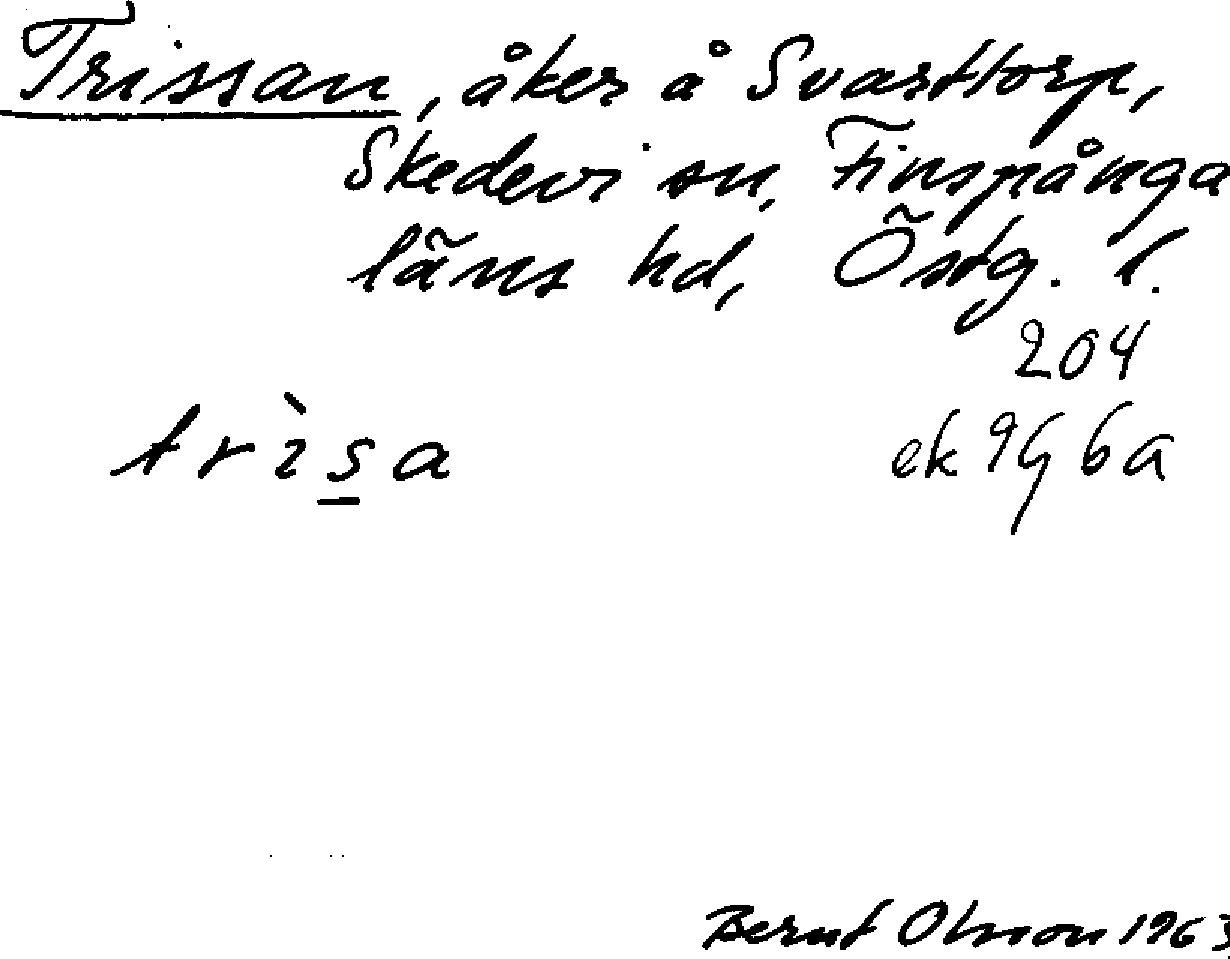 Trissan, åker å Svarttorp,
Skedevi sn, Finspånga
läns hd, Östg. l.
204
trìs̲a ek 9G 6a
Bernt Olsson 1963